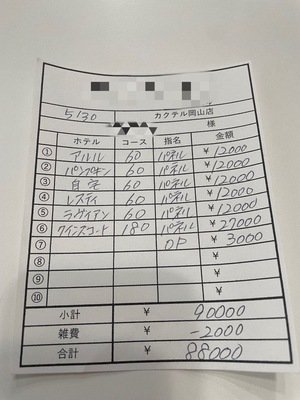 5/30 カクテル岡山店
様
ホテル コース 指名 金額
① アルル 60 パネル ¥12000
② パンプキン 60 パネル ¥12000
③ 自宅 60 パネル ¥12000
④ レスティ 60 パネル ¥12000
⑤ ラヴィアン 60 パネル ¥12000
⑥ クインズコート 180 パネル ¥27000
⑦ OP ¥3000
⑧ ¥
⑨ ¥
⑩ ¥
小計 ¥ 90000
雑費 ¥ -2000
合計 ¥ 88000